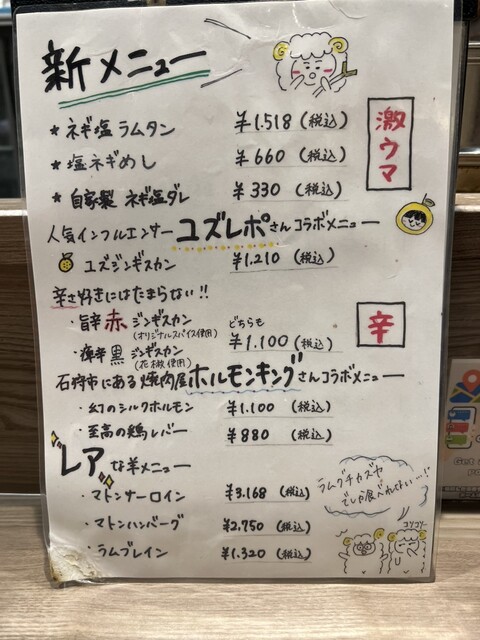 新メニュー
* ネギ塩ラムタン ¥1.518 (税込)
* 塩ネギめし ¥660 (税込)
* 自家製 ネギ塩ダレ ¥330 (税込)
激ウマ
人気インフルエンサー ユズレポさんコラボメニュー
ユズジンギスカン ¥1.210 (税込)
辛さ好きにはたまらない!!
辛
・旨辛 赤 ジンギスカン
(オリジナルスパイス使用)
どちらも
¥1.100 (税込)
・痺辛 黒 ジンギスカン
(花椒使用)
石狩市にある焼肉屋ホルモンキングさんコラボメニュー
・幻のシルクホルモン ¥1.100 (税込)
・至高の鶏レバー ¥880 (税込)
レアな羊メニュー
・マトンサーロイン ¥3.168 (税込)
・マトンハンバーグ ¥2.750 (税込)
・ラムブレイン ¥1.320 (税込)
ラムグチカズヤ
でしか食べれてない…!
コソコソ…
Get